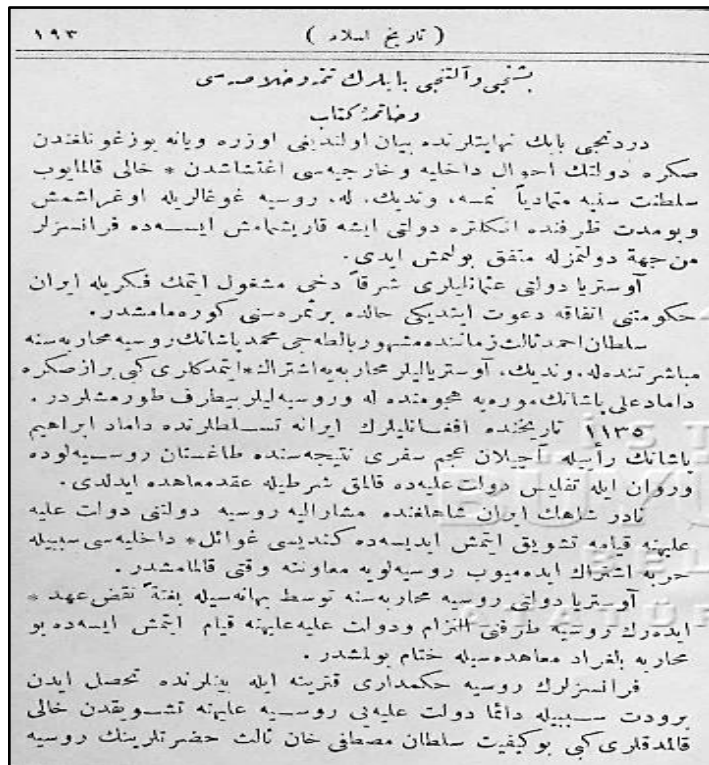 ١٩٣ ( تاريخ اسلام )
بشنجى وآلتنجى بابلرك تتمه وخلاصه سى
وخاتمۀ كتاب
دردنجى بابك نهايتلرنده بيان اولنديغى اوزره ويانه بوزغونلغندن
صكره دولتك احوال داخليه وخارجيه سى اغتشاشدن * خالى قالمايوب
سلطنت سنيه متمادياً نمسه، ونديك، له، روسيه غوغالريله اوغراشمش
وبومدت ظرفنده انكلتره دولتى ايشه قاريشمامش ايسه ده فرانسزلر
من جهة دولتمزله متفق بولنمش ايدى.
آوستريا دولتى عثمانليلرى شرقاً دخى مشغول ايتمك فكريله ايران
حكومتنى اتفاقه دعوت ايتديكى حالده برثمره سنى كوره مامشدر.
سلطان احمد ثالث زماننده مشهور بالطه جى محمد پاشانك روسيه محاربه سنه
مباشرتنده له، ونديك، آوستريالیلر محاربه يه اشتراك * ايتمدكلرى كبى براز صكره
داماد على پاشانك موره يه هجومنده له وروسيه ليلر بيطرف طورمشلردر.
١١٣٥ تاريخنده افغانليلرك ايرانه تسلطلرنده داماد ابراهيم
پاشانك رأييله آچيلان عجم سفرى نتيجه سنده طاغستان روسيه لوده
وروان ايله تفليس دولت عليه ده قالمق شرطيله عقد معاهده ايدلدى.
نادر شاهك ايران شاهلغنده مشاراليه روسيه دولتنى دولت عليه
عليهنه قيامه تشويق ايتمش ايديسه ده كنديسى غوائل * داخليه سى سببيله
حربه اشتراك ايده ميوب روسيه لويه معاونته وقتى قالمامشدر.
آوستريا دولتى روسيه محاربه سنه توسط بهانه سيله بغتةً نقض عهد *
ايده رك روسيه طرفنى التزام ودولت عليه عليهنه قيام ايتمش ايسه ده بو
محاربه بلغراد معاهده سيله ختام بولمشدر.
فرانسزلرك روسيه حكمدارى قترينه ايله بينلرنده تحصل ايدن
برودت سببيله دائما دولت عليه يى روسيه عليهنه تشويقدن خالى
قالمدقلرى كبى بوكيفيت سلطان مصطفى خان ثالث حضرتلرينك روسيه